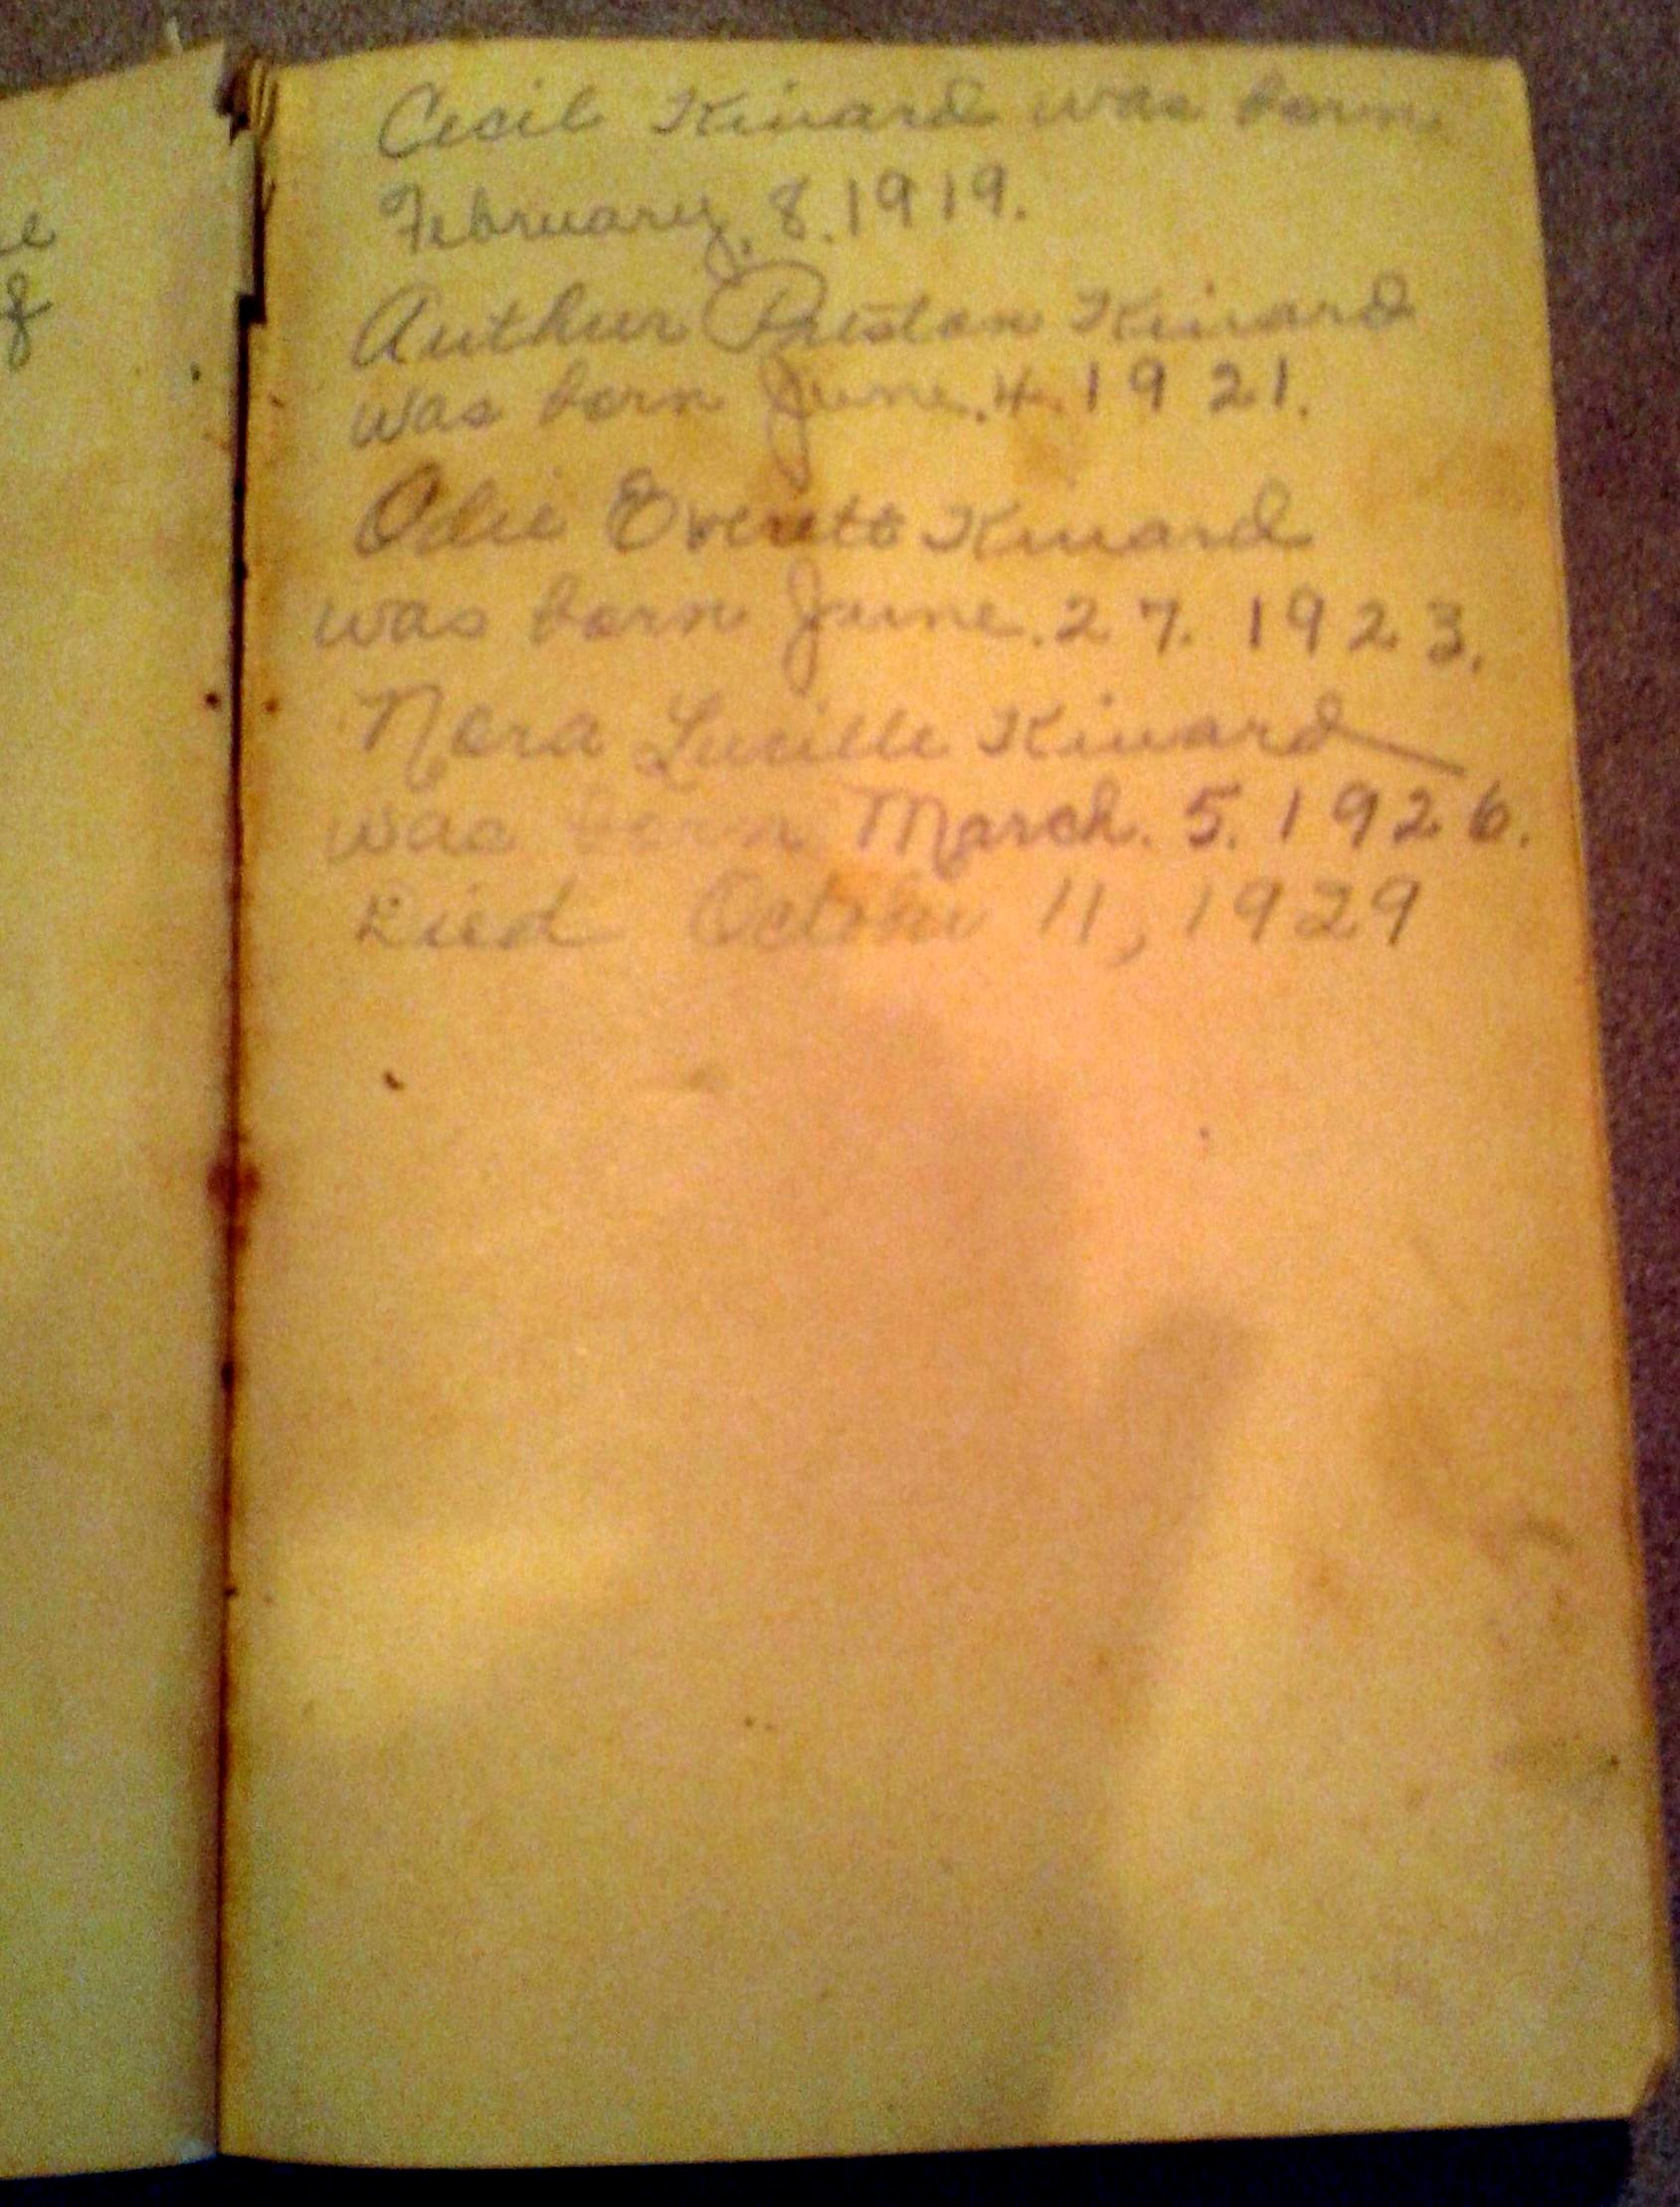 Cecil Kinard was born
February, 8. 1919.
Authur Preston Kinard
was born June. 4. 1921.
Odie Everett Kinard
was born June. 27. 1923.
Nora Lucille Kinard
was born March. 5. 1926.
Died October 11, 1929